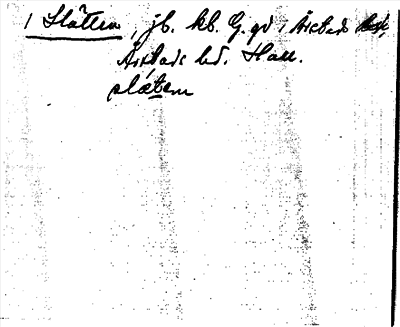 1 Slätten, jb. kb. G. gd i Årstads
Årstads hd. Hall.
slætεn